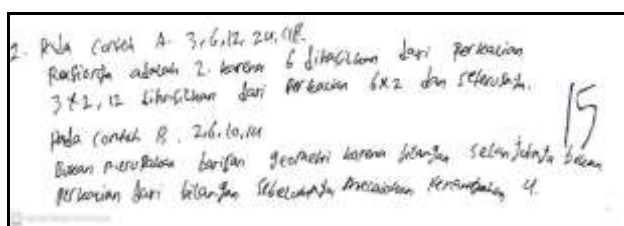 2. Pada Contoh A. 3, 6, 12, 24, 48.
Rasionya adalah 2. karena 6 dihasilkan dari perkalian
3 x 2, 12 dihasilkan dari perkalian 6x2 dan seterusnya.
Pada Contoh B. 2, 6, 10, 14
Bukan merupakan barisan geometri karena bilangan selanjutnya bukan
perkalian dari bilangan sebelumnya melainkan penambahan 4.
15